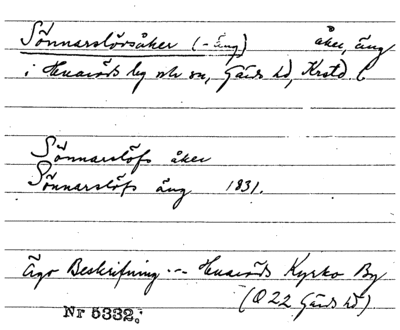 Sönnarslövsåker (-äng) åker, äng
i Huaröds by och sn, Gärds hd, Krstd l
Sönnarslöfs åker
Sönnarslöfs äng 1831.
Ägo Beskrifning -- Huaröds Kyrko By
(Q22 Gärds hd)
Nr 5332.